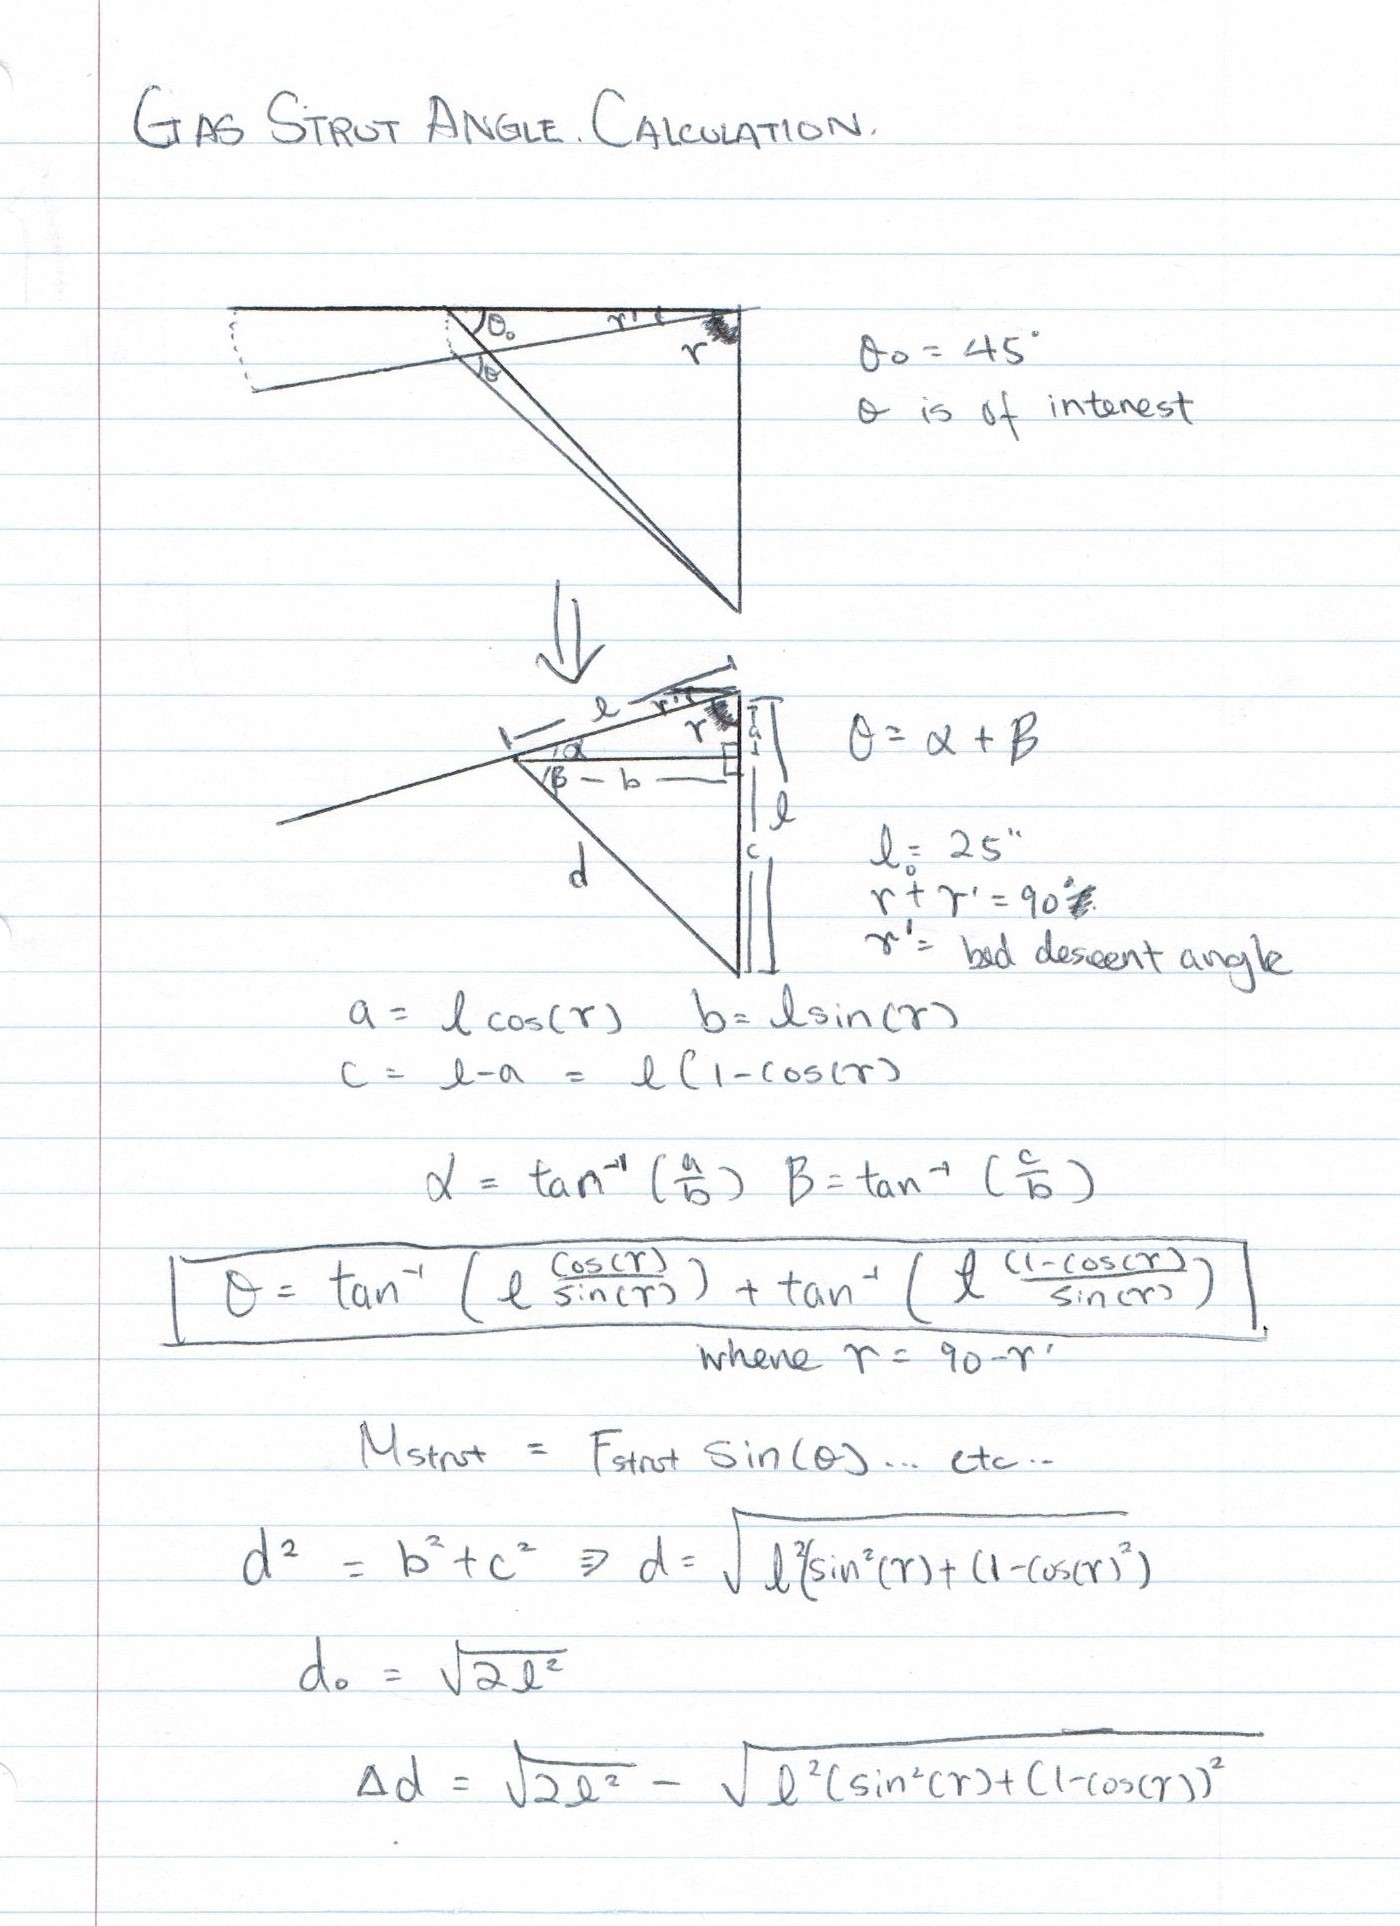 GAS STRUT ANGLE. CALCULATION.
θ₀ r' r
θ
θ₀ = 45°
θ is of interest
l r' r a
α
β – b
l
c
d
θ = α + β
l₀ = 25"
r + r' = 90°
r' = bed descent angle
a = l cos(r) b = l sin(r)
c = l-a = l (1-cos(r)
α = tan⁻¹ (a/b) β = tan⁻¹ (c/b)
θ = tan⁻¹ (l cos(r)/sin(r)) + tan⁻¹ (l (1-cos(r)/sin(r))
where r = 90-r'
Mstrut = Fstrut sin(θ)... etc...
d² = b²+c² ⇒ d = √l²(sin²(r)+(1-cos(r)²)
d₀ = √2l²
Δd = √2l² – √l²(sin²(r)+(1-cos(r))²